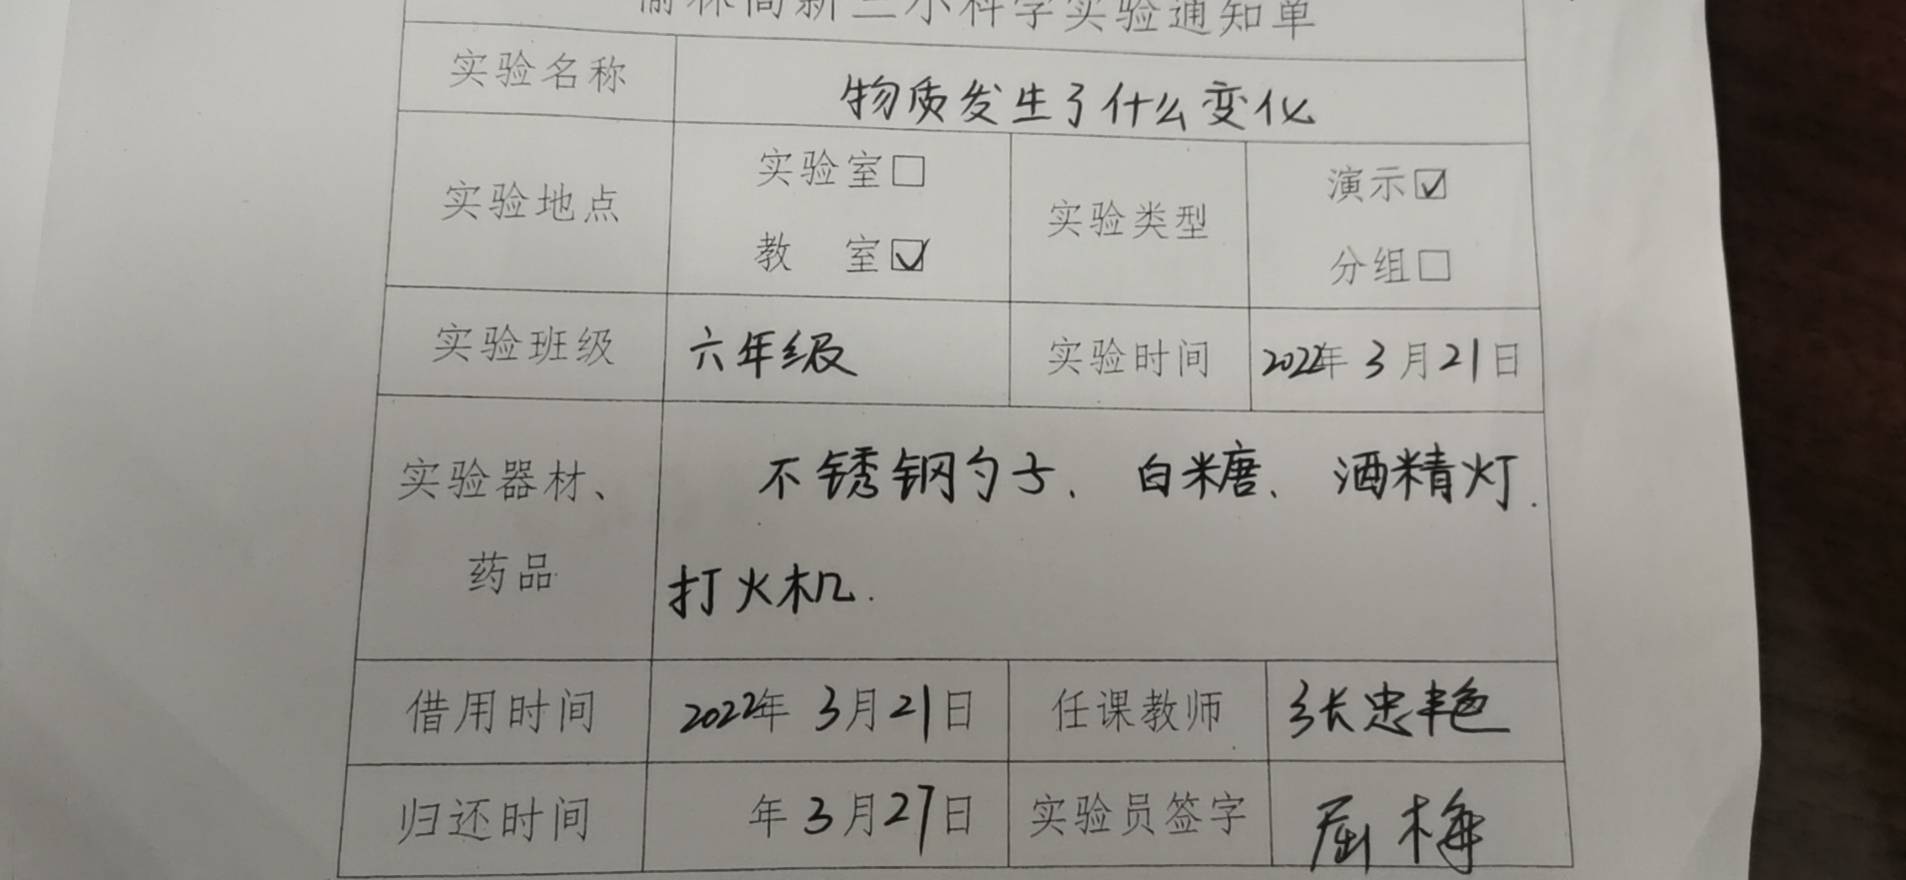 榆林高新三小科学实验通知单
实验名称 物质发生了什么变化
实验地点 实验室□ 教 室☑ 实验类型 演示☑ 分组□
实验班级 六年级 实验时间 2022年3月21日
实验器材、药品 不锈钢勺子、白糖、酒精灯、
打火机.
借用时间 2022年3月21日 任课教师 张忠艳
归还时间 年3月27日 实验员签字 屈梅